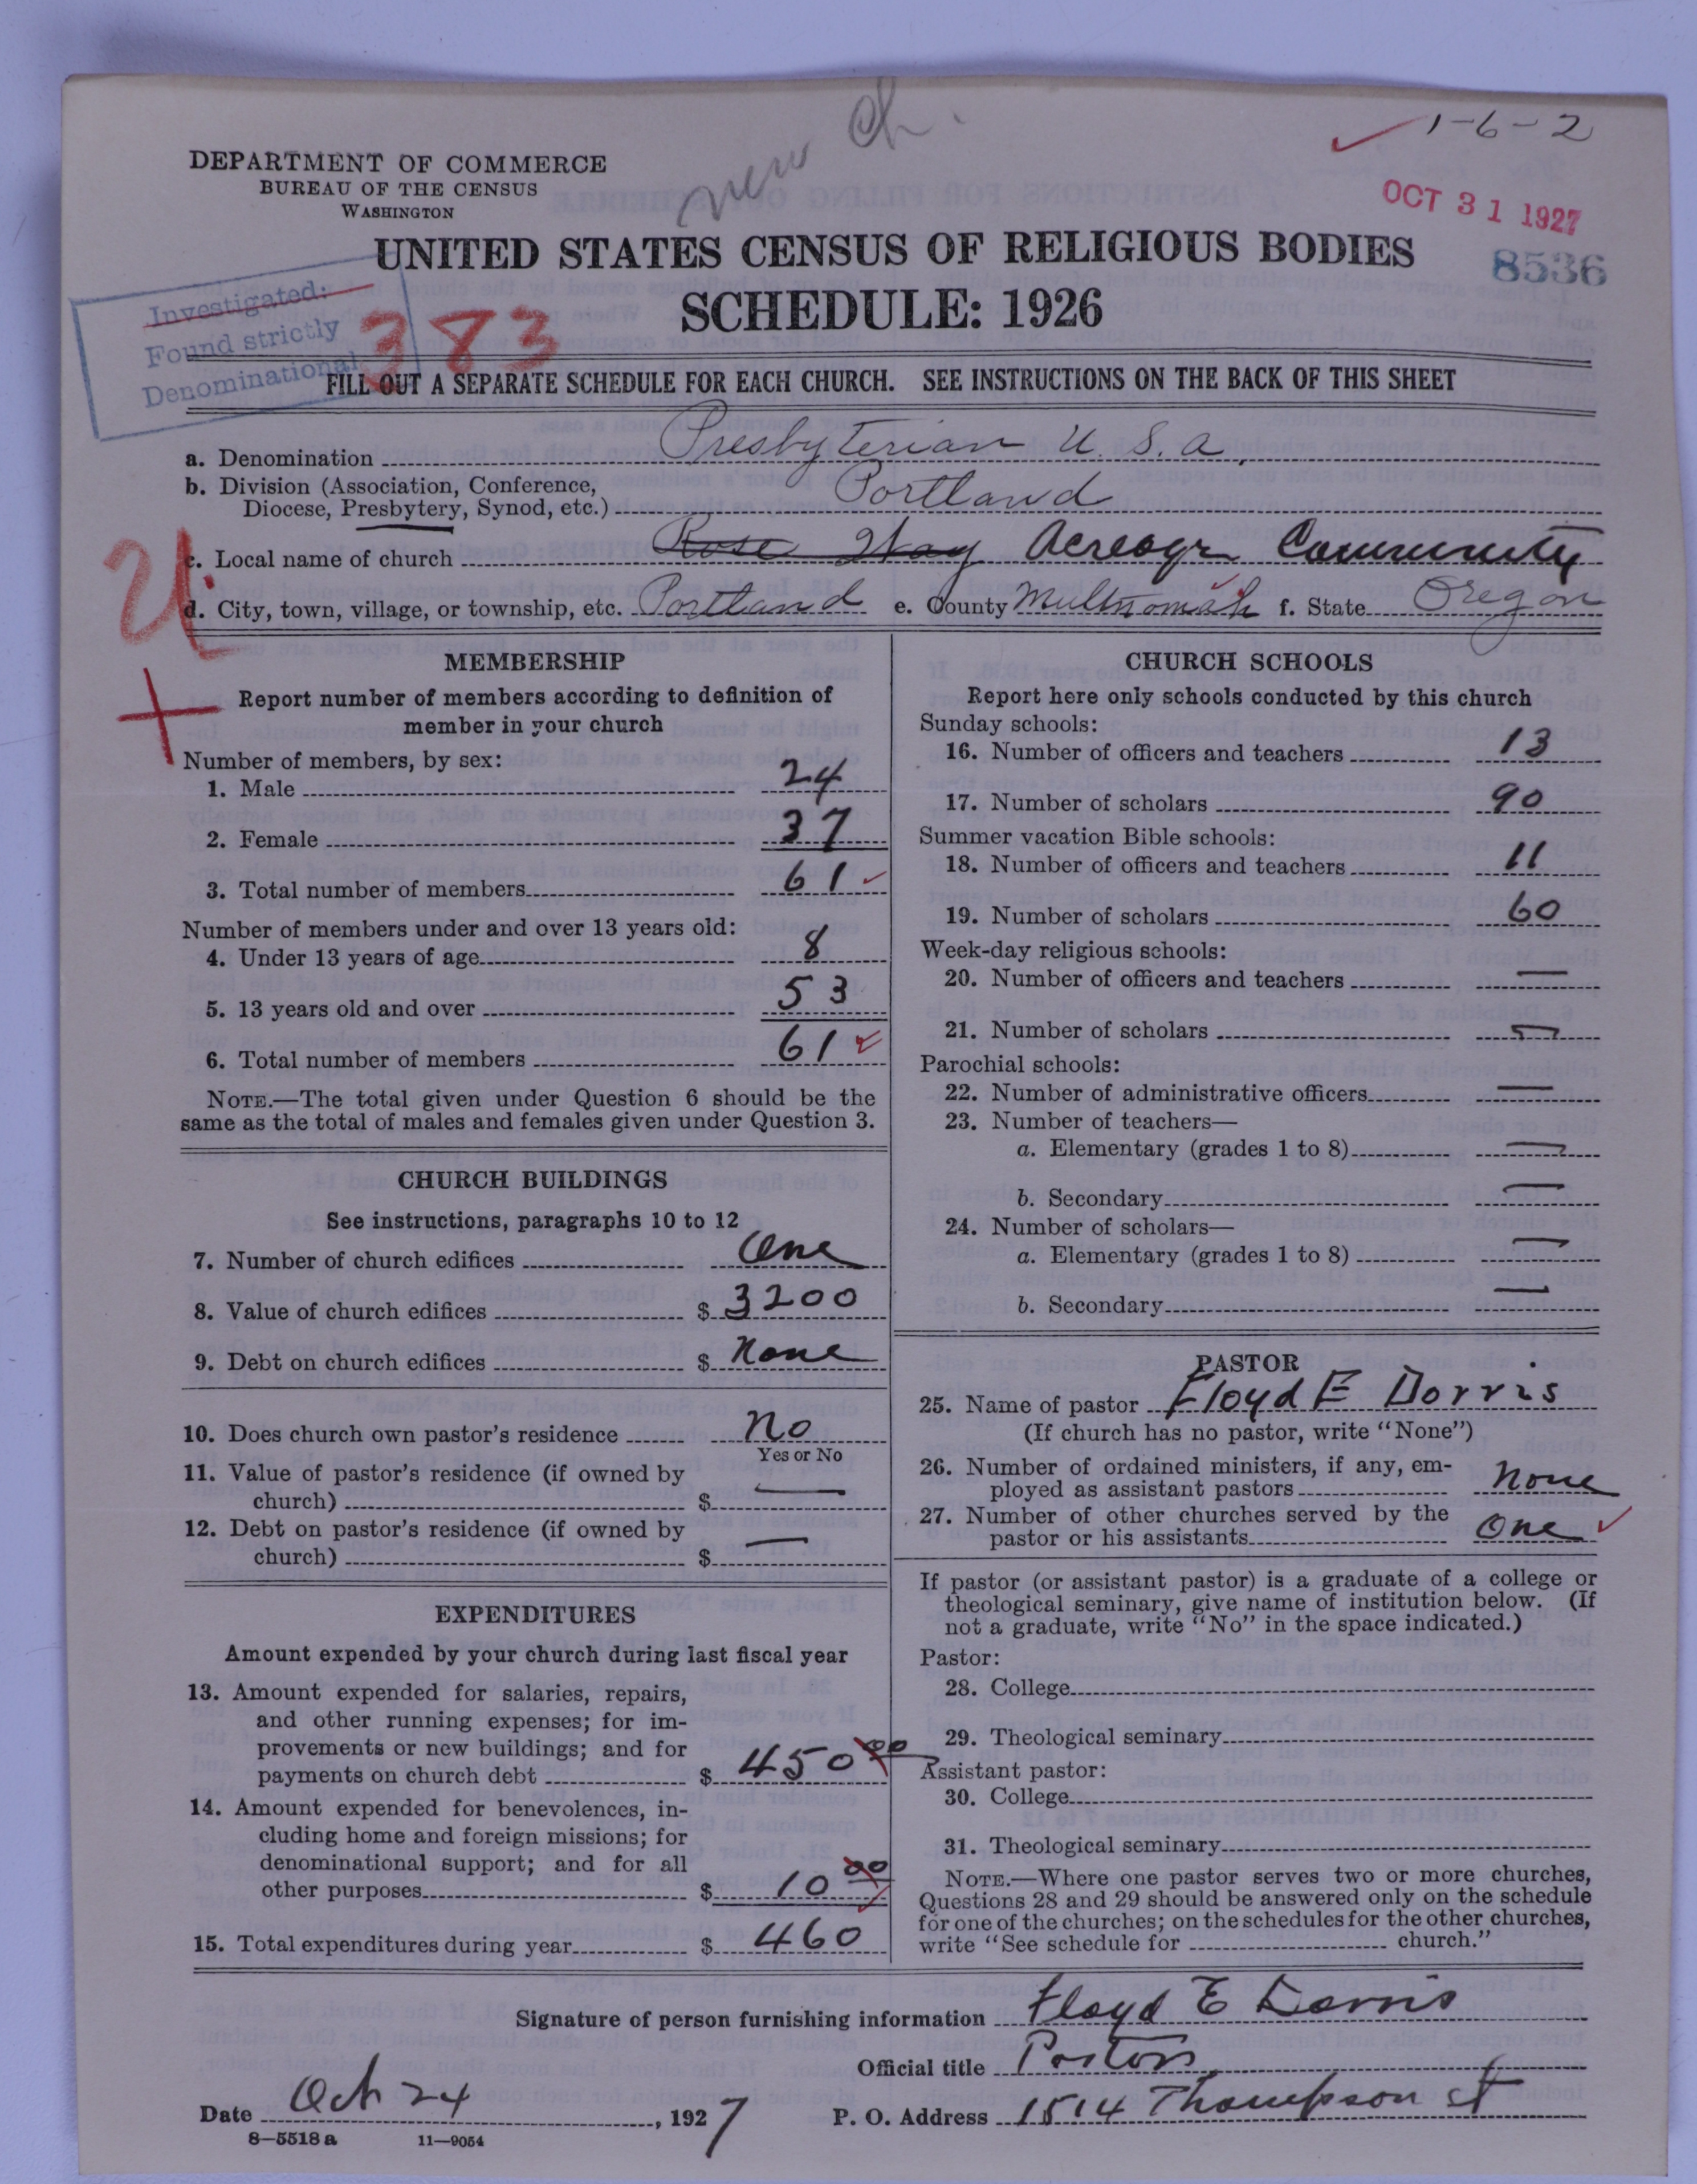 new Ch.
1-6-2
DEPARTMENT OF COMMERCE
BUREAU OF THE CENSUS
WASHINGTON
OCT 31 1927
UNITED STATES CENSUS OF RELIGIOUS BODIES
8536
SCHEDULE: 1926
Investigated:
Found strictly
Denominational
383
FILL OUT A SEPARATE SCHEDULE FOR EACH CHURCH. SEE INSTRUCTIONS ON THE BACK OF THIS SHEET
a. Denomination Presbyterian U. S. a.
b. Division (Association, Conference,
Diocese, Presbytery, Synod, etc.) Portland
c. Local name of church Rose Way Community
d. City, town, village, or township, etc. Portland e. County Multnomah f. State Oregon
MEMBERSHIP
Report number of members according to definition of
member in your church
Number of members, by sex:
1. Male 24
2. Female 37
3. Total number of members 61
Number of members under and over 13 years old:
4. Under 13 years of age 8
5. 13 years old and over 53
6. Total number of members 61
NOTE.—The total given under Question 6 should be the
same as the total of males and females given under Question 3.
CHURCH BUILDINGS
See instructions, paragraphs 10 to 12
7. Number of church edifices One
8. Value of church edifices $ 3200
9. Debt on church edifices $ None
10. Does church own pastor's residence No
Yes or No
11. Value of pastor's residence (if owned by
church) $ —
12. Debt on pastor's residence (if owned by
church) $ —
EXPENDITURES
Amount expended by your church during last fiscal year
13. Amount expended for salaries, repairs,
and other running expenses; for im-
provements or new buildings; and for
payments on church debt $ 450 00
14. Amount expended for benevolences, in-
cluding home and foreign missions; for
denominational support; and for all
other purposes $ 10 00
15. Total expenditures during year $ 460
CHURCH SCHOOLS
Report here only schools conducted by this church
Sunday schools:
16. Number of officers and teachers 13
17. Number of scholars 90
Summer vacation Bible schools:
18. Number of officers and teachers 11
19. Number of scholars 60
Week-day religious schools:
20. Number of officers and teachers —
21. Number of scholars —
Parochial schools:
22. Number of administrative officers —
23. Number of teachers—
a. Elementary (grades 1 to 8) —
b. Secondary —
24. Number of scholars—
a. Elementary (grades 1 to 8) —
b. Secondary —
PASTOR
25. Name of pastor Floyd E Dorris
(If church has no pastor, write "None")
26. Number of ordained ministers, if any, em-
ployed as assistant pastors None
27. Number of other churches served by the
pastor or his assistants One
If pastor (or assistant pastor) is a graduate of a college or
theological seminary, give name of institution below. (If
not a graduate, write "No" in the space indicated.)
Pastor:
28. College
29. Theological seminary
Assistant pastor:
30. College
31. Theological seminary
NOTE.—Where one pastor serves two or more churches,
Questions 28 and 29 should be answered only on the schedule
for one of the churches; on the schedules for the other churches,
write "See schedule for church."
Signature of person furnishing information Floyd E Dorris
Official title Pastor
Date Oct 24, 1927 P. O. Address 1514 Thompson St
8-5518 a 11-9054